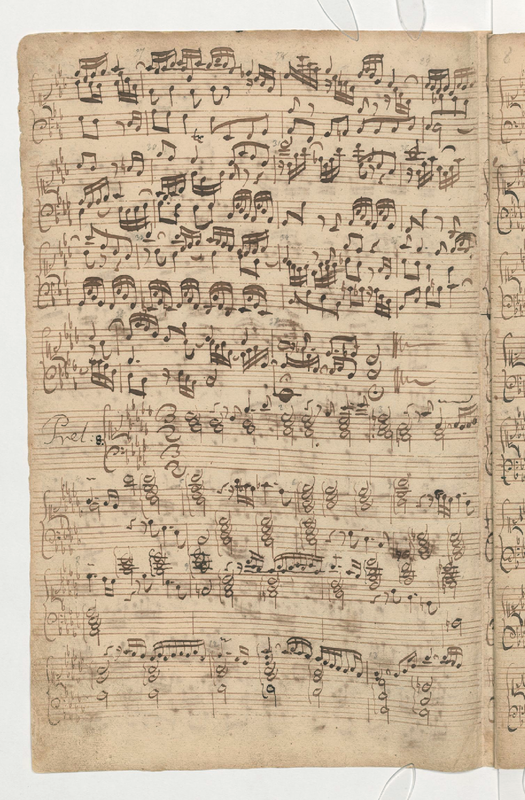 Prel: 8.